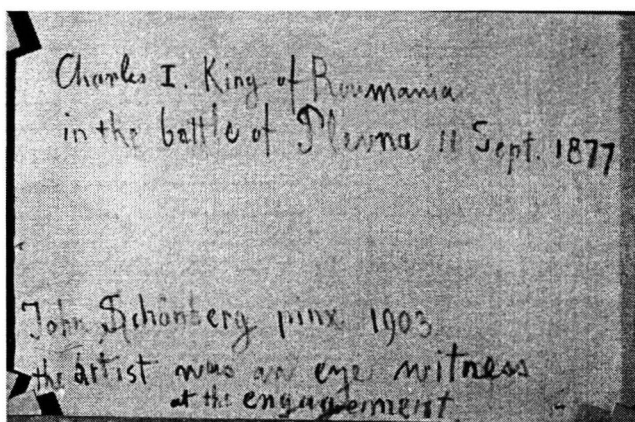 Charles I. King of Roumania
in the battle of Plevna 11 Sept. 1877
John Schönberg pinx 1903
the artist was an eye witness
at the engagement